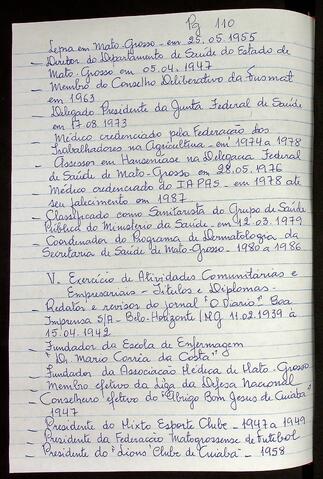 Pg 110
Lepra em Mato-Grosso - em 25.05.1955
- Diretor do Departamento de Saúde do Estado de
Mato-Grosso em 05.04.1947
- Membro do Conselho Deliberativo da Fusmat
em 1963
- Delegado Presidente da Junta Federal de Saúde
em 17.08.1973
- Médico credenciado pela Federação dos
Trabalhadores na Agricultura - em 1974 a 1978
- Assessor em Hanseníase na Delegacia Federal
de Saúde de Mato-Grosso - em 28.05.1976
- Médico credenciado do IAPAS - em 1978 até
seu falecimento em 1987
- Classificado como Sanitarista do Grupo de Saúde
Pública do Ministério da Saúde - em 12.03.1979
- Coordenador do Programa de Dermatologia da
Secretaria de Saúde de Mato-Grosso - 1980 a 1986
V. Exercício de Atividades Comunitárias e
Empresariais - Títulos e Diplomas.
- Redator e revisor do jornal "O Diário". Boa
Imprensa S/A - Belo-Horizonte/MG 11.02.1939 à
15.04.1942
- Fundador da Escola de Enfermagem
"Dr. Mario Corrêa da Costa"
- Fundador da Associação Médica de Mato-Grosso
- Membro efetivo da Liga da Defesa Nacional
- Conselheiro efetivo do "Abrigo Bom Jesus de Cuiabá"
1947
- Presidente do Mixto Esporte Clube - 1947 a 1949
- Presidente da Federação Matogrossense de Futebol
- Presidente do "Lions" Clube de Cuiabá - 1958